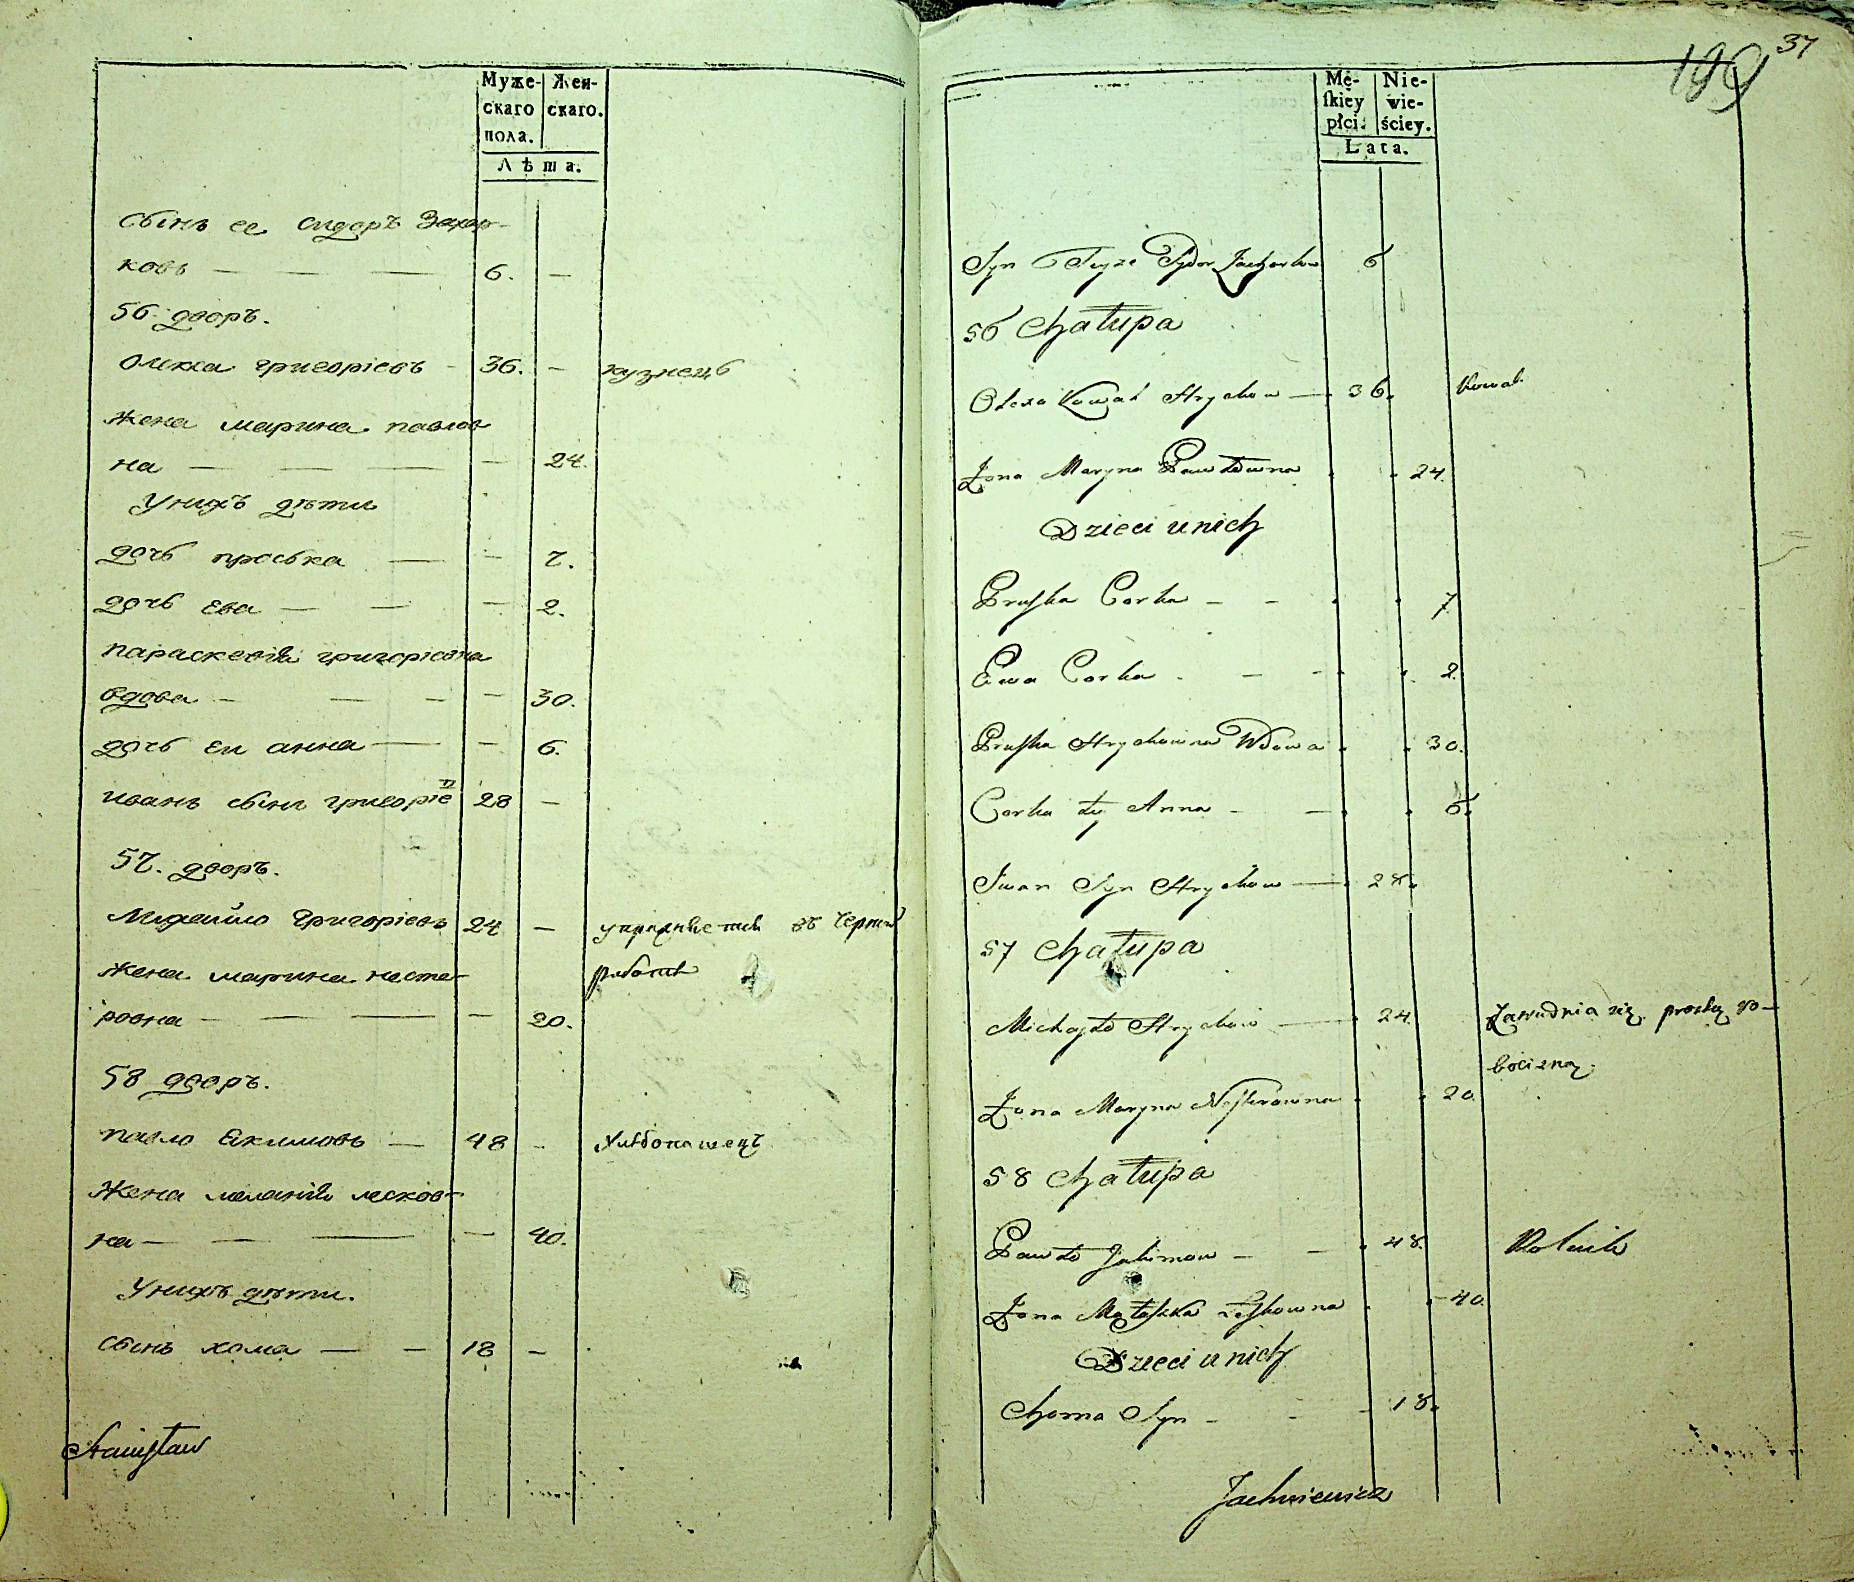 Муже-
скаго
пола.
Жен-
скаго.
Лѣта.
сынъ ее сидоръ Захар-
ковъ — — — 6. —
56. дворъ.
олекса григоріевъ - 36. - кузнецъ
жена марина павлов
на — — — — 24.
Унихъ дѣти
дочь проська — — 7.
дочь Ева — — — 2.
параскевія григоріевна
вдова — — — — 30.
дочь еи анна — — 6.
иванъ сынъ григоріе 28 —
57. дворъ.
Михайло Григоріевъ 24 — упражняется въ черной
жена марина несте- работѣ
ровна — — — — 20.
58 дворъ.
павло Якимовъ — 48 - хлѣбопашецъ
жена меланія лесков-
на — — — — 40.
Унихъ дѣти.
сынъ хома — — 18 —
Stanisław
199 37
Mę-
skiey
płci.
Nie-
wie-
ściey.
Lata.
Syn Teyże Sydor Zacharkow 6
56 Chałupa
Olexa Kowal Hrychow — 36. Kowal
Żona Maryna Pawłowna 24.
Dzieci u nich
Pruska Corka - - 7
Ewa Corka - - - 2.
Pruska Hrychowna Wdowa 30.
Corka tey Anna - — 6.
Iwan Syn Hrychow — 28.
57 Chałupa
Michayło Hrychow — 24. Zatrudnia się prostą ro-
bocizną.
Żona Maryna Nesterowna 20.
58 Chałupa
Pawło Jakimow - - 48. Rolnik
Żona Małaszka Leskowna - 40.
Dzieci u nich
Choma Syn - - - 18.
Jachniewicz